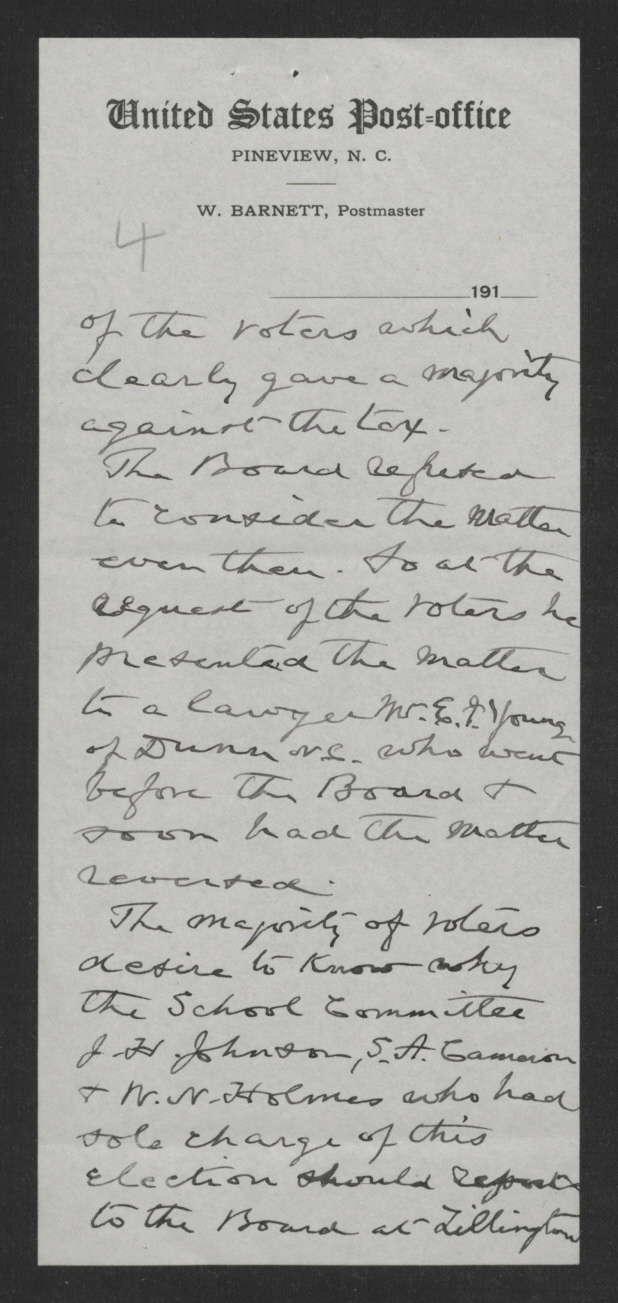 United States Post-office
PINEVIEW, N. C.
W. BARNETT, Postmaster
4
191
of the voters which
clearly gave a majority
against the tax.
The Board refused
to consider the matter
even then. So at the
request of the voters he
presented the matter
to a lawyer Mr. E. F. Young
of Dunn N.C. who went
before the Board &
soon had the matter
reversed.
The majority of voters
desire to Know why
the School Committee
J. H. Johnson, S. A. Cameron
& W. N. Holmes who had
sole charge of this
election should report
to the Board at Lillington